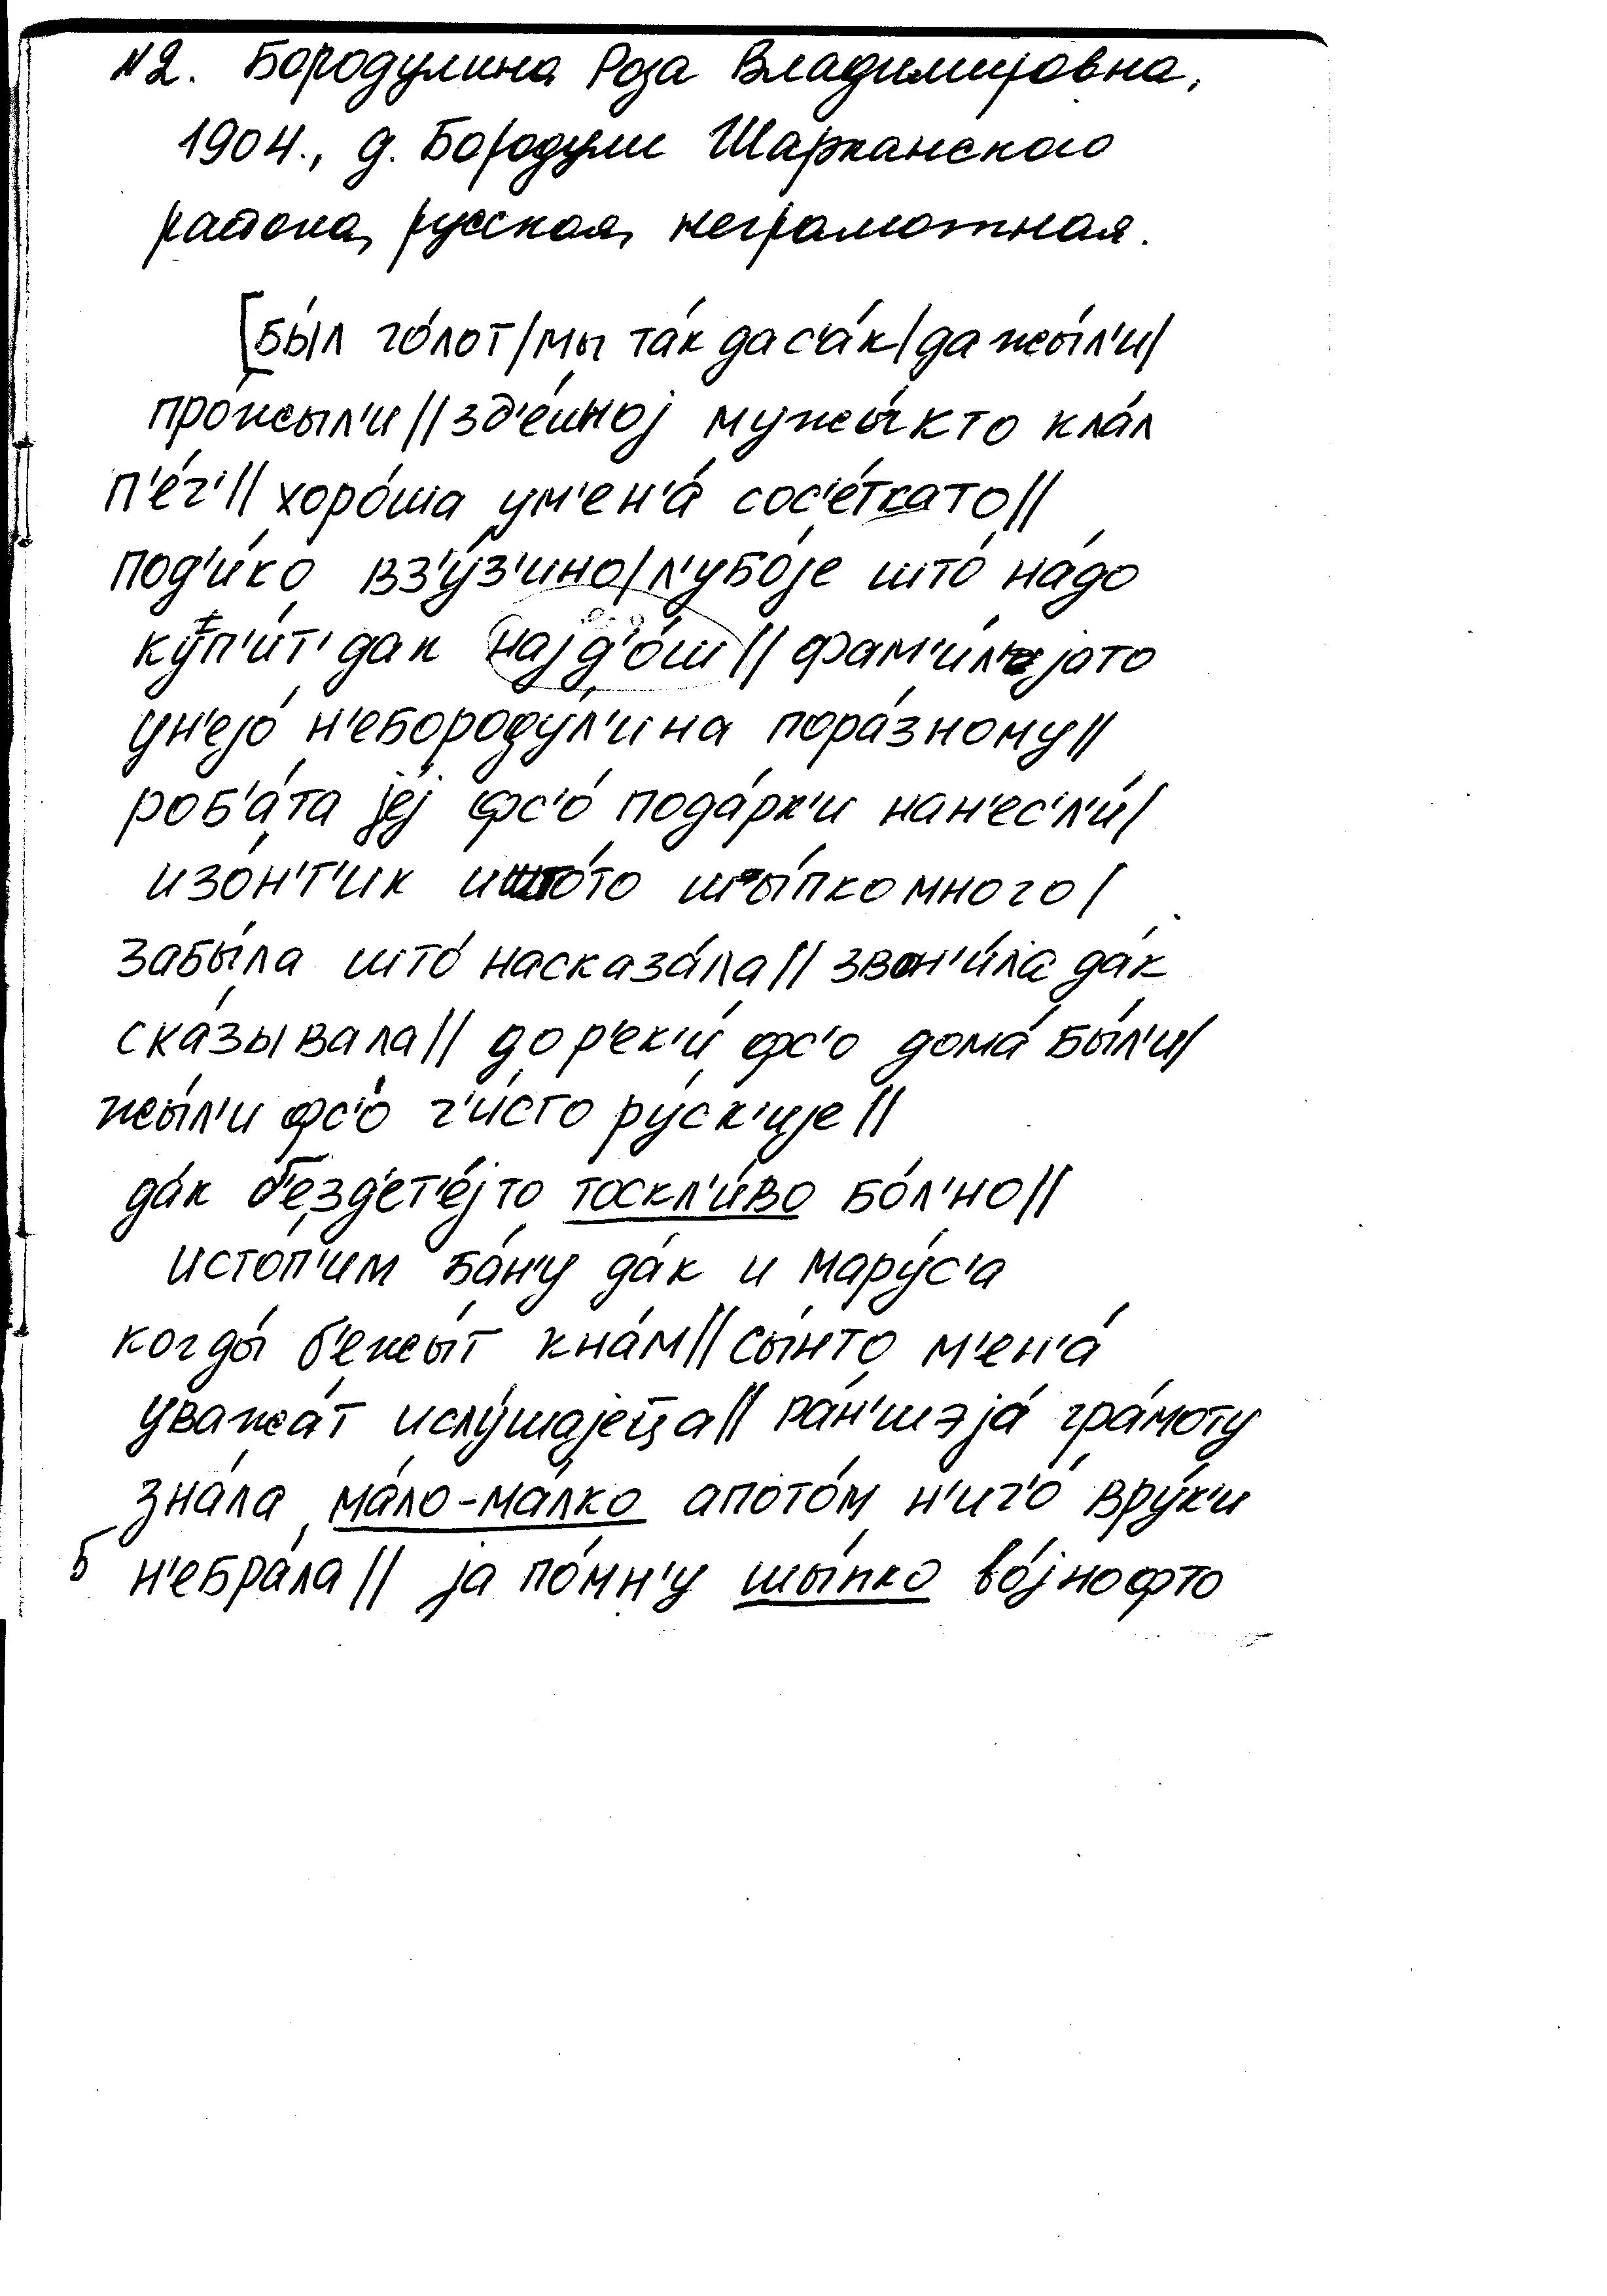 №2. Бородулина Роза Владимировна,
1904., д. Бородули Шарканского
района, русская, неграмотная.
[бы́л го́лот/мы та́к дас'а́к/да жы́л'и/
про́жыл'и//зд'е́шној мужы́кто кла́л
п'е́ч'//хоро́ша ум'ен'а́ сос'е́ткато//
под'и́ко вз'у́з'ино/л'убо́је што́ на́до
куп'и́т' дак најд'о́ш//фам'и́л'ијато
ун'ејо́ н'ебороду́л'ина пора́зному//
роб'а́та је́ј фс'о́ пода́рк'и нан'ес'л'и́/
изо́н'т'ик ишто́то шы́пко много/
забы́ла што́ насказа́ла//звон'и́ла да́к
ска́зывала//дор'ек'и́ фс'о дома́ бы́л'и/
жы́л'и фс'о́ ч'и́сто ру́ск'ије//
да́к б'езд'ет'е́јто тоскл'и́во бо́л'но//
истоп'им ба́н'у да́к и мару́с'а
когды́ б'ежы́т кна́м//сы́нто м'ен'а́
уважа́т ислу́шајеца//ра́н'шэја́ гра́моту
зна́ла ма́ло-ма́лко апото́м н'ич'о́ вру́к'и
н'ебра́ла//ја по́мн'у шы́пко во́јнофто